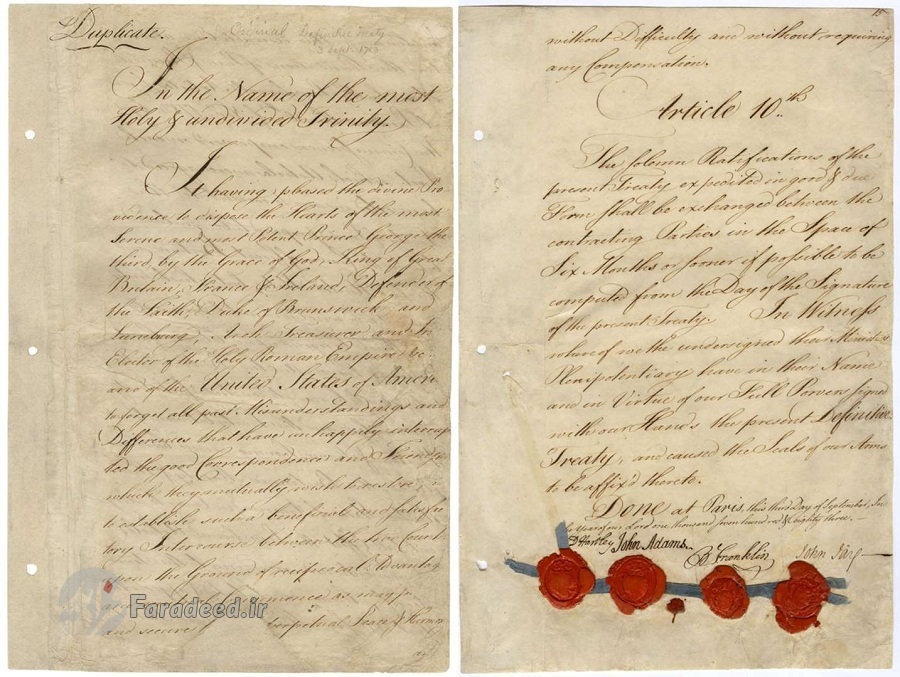 Duplicate.
Original Definitive Treaty
3 Sept. 1783
In the Name of the most
Holy & undivided Trinity.
It having pleased the divine Pro
vidence to dispose the Hearts of the most
Serene and most Potent Prince George the
third, by the Grace of God, King of Great
Britain, France & Ireland, Defender of
the Faith, Duke of Brunswick and
Lunebourg, Arch Treasurer and
Elector of the Holy Roman Empire &c.
and of the United States of Ameri
to forget all past Misunderstandings and
Differences that have unhappily interrup
ted the good Correspondence and Friendship
which they mutually wish to restore;
to establish such a beneficial and satisfac
tory Intercourse between the two Count
upon the Ground of reciprocal Advantag
and secure perpetual Peace & Harmo
Faradeed.ir
without Difficulty and without requiring
any Compensation.
Article 10.th
The solemn Ratifications of the
present Treaty expedited in good & due
Form shall be exchanged between the
contracting Parties in the Space of
Six Months or sooner if possible to be
computed from the Day of the Signature
of the present Treaty. In Witness
whereof we the undersigned their Ministers
Plenipotentiary have in their Name
and in Virtue of our Full Powers signed
with our Hands the present Definitive
Treaty, and caused the Seals of our Arms
to be affix'd thereto.
Done at Paris, this third Day of September, In
Year of our Lord one thousand seven hundred & eighty three.
D Hartley John Adams. B Franklin John Jay